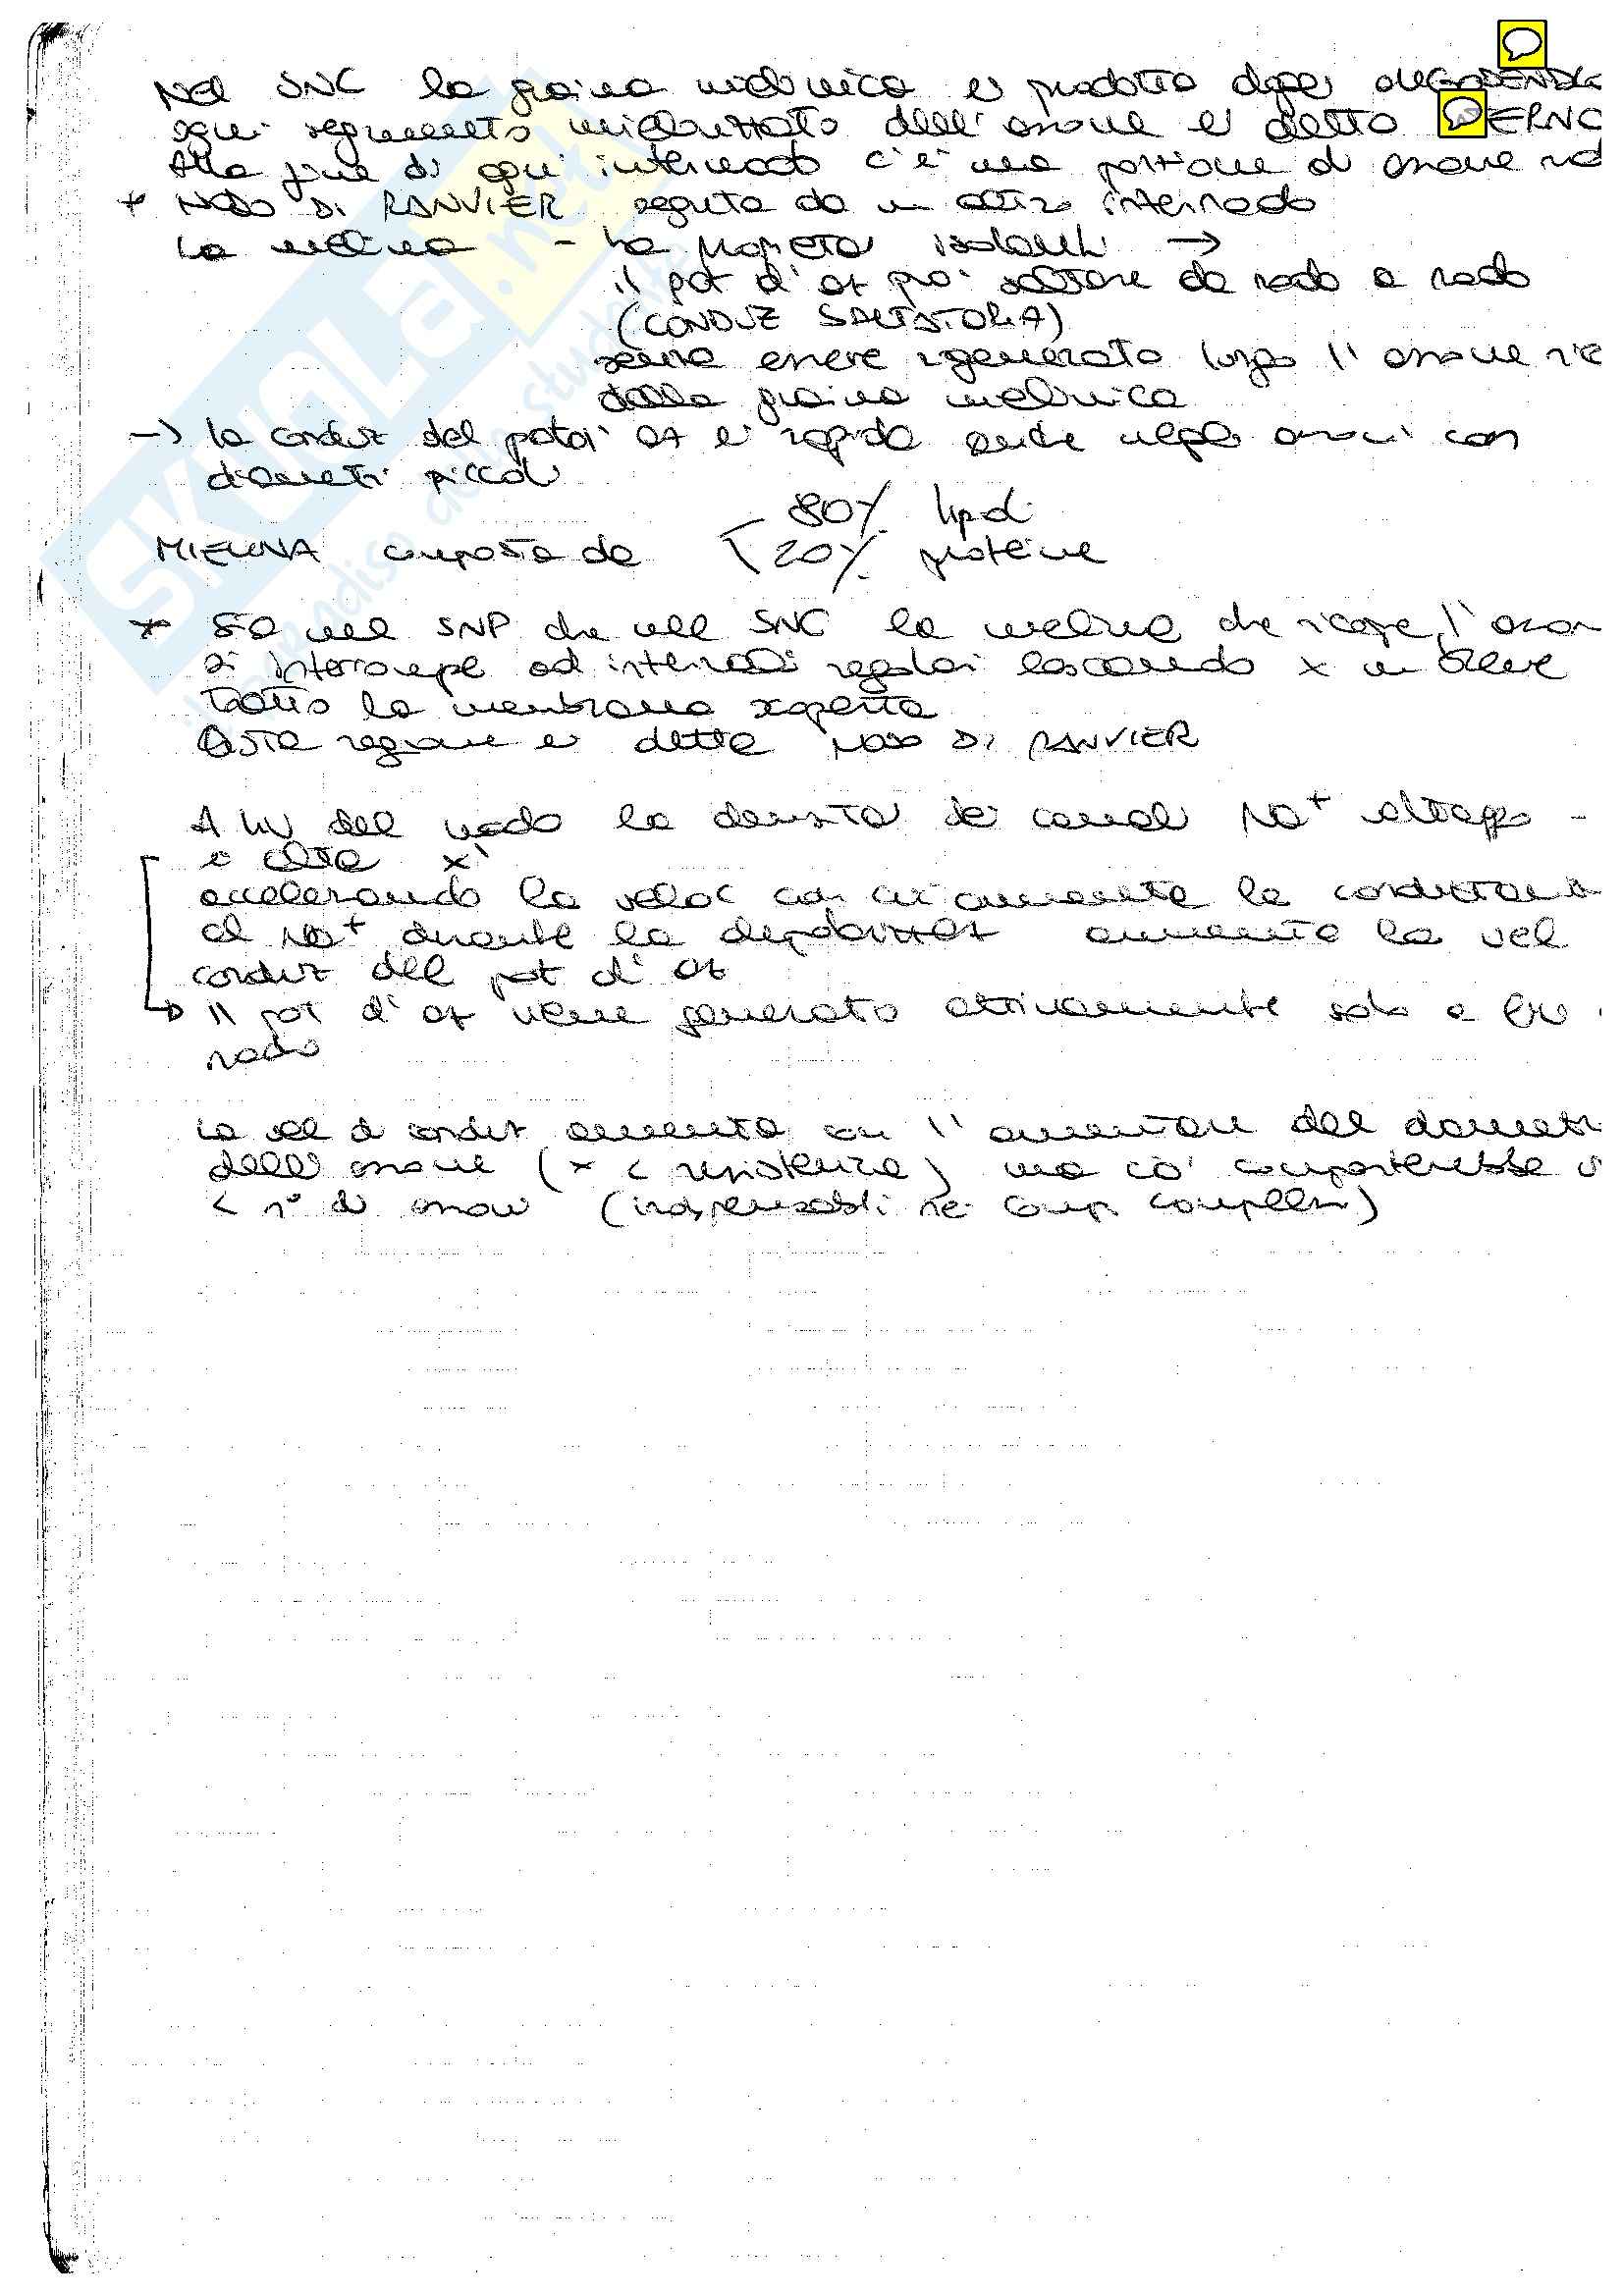 Nel SNC la guaina mielinica è prodotta dagli OLIGODENDR
ogni segmento mielinizzato dell'assone è detto ERNO
Alla fine di ogni internodo c'è una porzione di assone
* NODO DI RANVIER seguita da un altro internodo
La mielina - ha proprietà isolanti →
il pot d'az può saltare da nodo a nodo
(CONDUZ SALTATORIA)
senza essere rigenerato lungo l'assone
dalla guaina mielinica
-> la conduz del pot di az è rapida anche negli assoni con
diametri piccoli
80% lipidi
MIELINA composta da 20% proteine
* Sia nel SNP che nel SNC la mielina che ricopre l'asson
si interrompe ad intervalli regolari lasciando x un breve
tratto la membrana scoperta
Qsta regione è detta NODO DI RANVIER
A liv del nodo la densità dei canali Na+ voltaggio -
è alta x'
accelerando la veloc con cui aumenta la conduttan
al Na+ durante la depolarizzaz aumenta la vel
conduz del pot d'az
↳ Il pot d'az viene generato attivamente solo a liv
nodo
La vel di conduz aumenta con l'aumentare del diametr
dell'assone (x < resistenza) ma ciò comporterebbe
< n° di assoni (indispensabili nei comp complessi)
SKUOLA.net
il paradiso dello studente